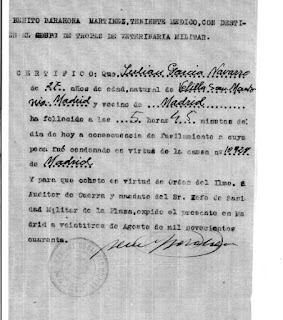 BENITO BARAHONA MARTINEZ, TENIENTE MEDICO, CON DESTI-
EL GRUPO DE TROPAS DE VETERINARIA MILITAR.
CERTIFICO: Que Julian Garcia Navarro
de 27 años de edad, natural de
Madrid y vecino de Madrid
ha fallecido a las 5 horas 45 minutos del
dia de hoy a consecuencia de Fusilamiento a cuya
pena fué condenado en virtud de la causa nº
de Madrid
Y para que conste en virtud de Orden del Ilmo.
Auditor de Guerra y mandato del Sr. Jefe de Sani
dad Militar de la Plaza, expido el presente en Ma
drid a veintitres de Agosto de mil novecientos
cuarenta.